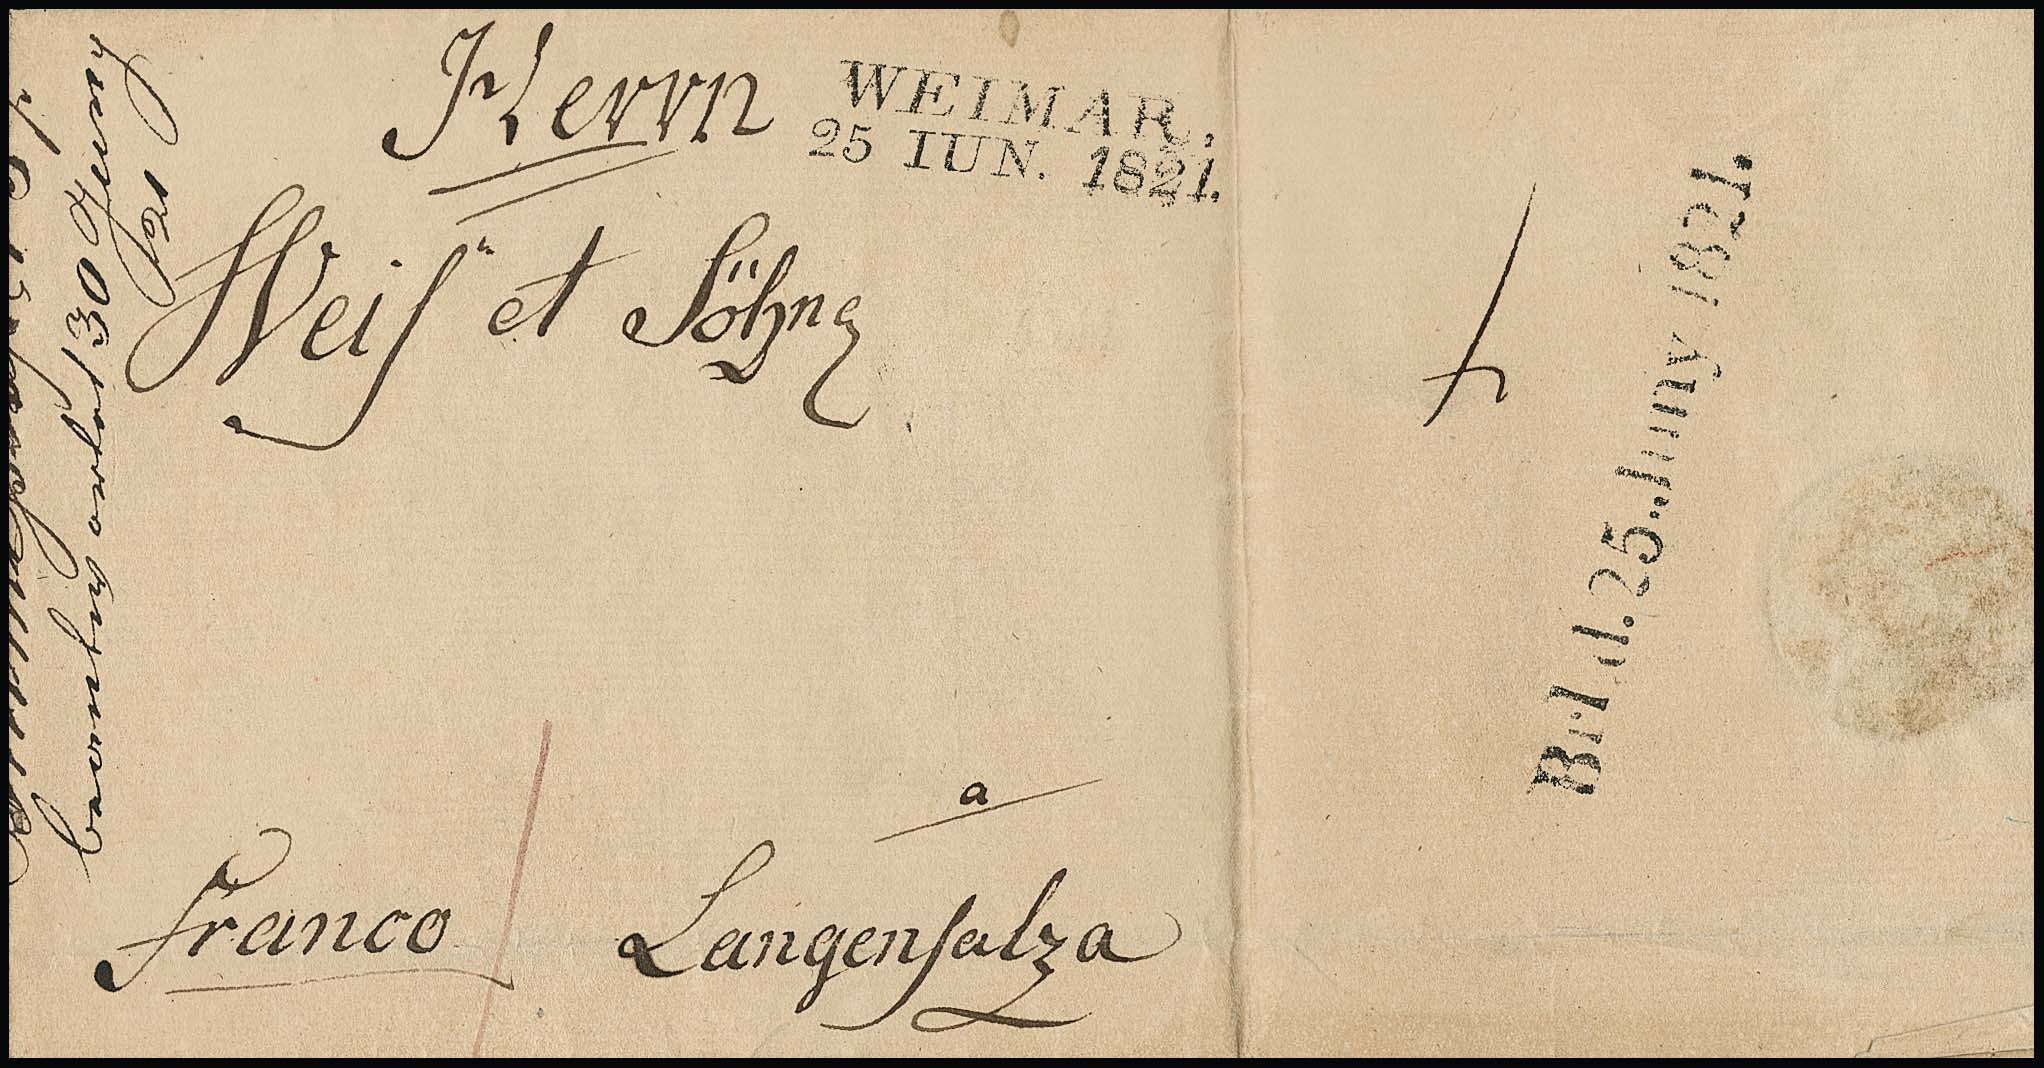 Herrn
WEIMAR.
25 IUN. 1821.
Weiß et Söhne
a
Franco
Langensalza
30 Juny
21
Brl d. 25. Juny 1821.